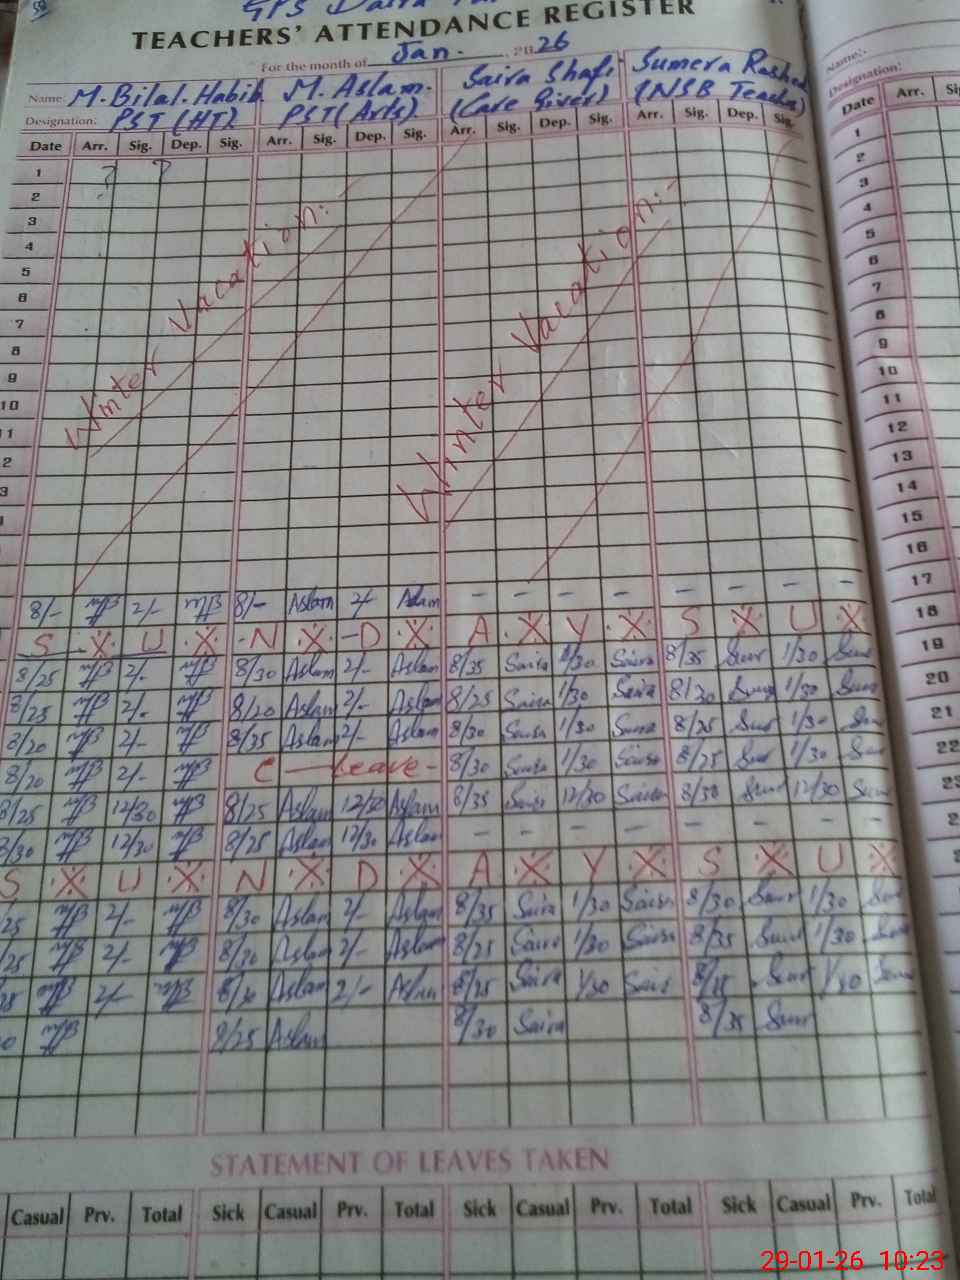 GPS Daira
TEACHERS' ATTENDANCE REGISTER
For the month of Jan. 2026
Name: M. Bilal. Habib M. Aslam. Saira Shafi Sumera Rashed
Designation: PST (HT) PST (Arts) (Care Giver) (NSB Teacher)
Date Arr. Sig. Dep. Sig. Arr. Sig. Dep. Sig. Arr. Sig. Dep. Sig. Arr. Sig. Dep. Sig.
1
2
3
4
5
6
7
8
9
10
11
2
3
Winter Vacation:-
Winter Vacation:-
8/- MB 2/- MB 8/- Aslam 2/- Aslam - - - - - - - -
S X U X N X D X A X Y X S X U X
8/25 MB 2/- MB 8/30 Aslam 2/- Aslam 8/35 Saira 1/30 Saira 8/35 Sum 1/30 Sum
8/25 MB 2/- MB 8/20 Aslam 2/- Aslam 8/25 Saira 1/30 Saira 8/30 Sum 1/30 Sum
8/20 MB 2/- MB 8/35 Aslam 2/- Aslam 8/30 Saira 1/30 Saira 8/25 Sum 1/30 Sum
8/20 MB 2/- MB C - Leave - 8/30 Saira 1/30 Saira 8/25 Sum 1/30 Sum
8/25 MB 12/30 MB 8/25 Aslam 12/30 Aslam 8/35 Saira 12/30 Saira 8/30 Sum 12/30 Sum
8/30 MB 12/30 MB 8/25 Aslam 12/30 Aslam - - - - - - - -
S X U X N X D X A X Y X S X U X
25 MB 2/- MB 8/30 Aslam 2/- Aslam 8/35 Saira 1/30 Saira 8/30 Sum 1/30 Sum
25 MB 2/- MB 8/30 Aslam 2/- Aslam 8/25 Saira 1/30 Saira 8/35 Sum 1/30 Sum
MB 2/- MB 8/30 Aslam 2/- Aslam 8/25 Saira 1/30 Saira Sum 1/30 Sum
MB 8/25 Aslam 8/30 Saira 8/35 Sum
STATEMENT OF LEAVES TAKEN
Casual Prv. Total Sick Casual Prv. Total Sick Casual Prv. Total Sick Casual Prv. Total
Name:
Designation:
Date Arr.
1
2
3
4
5
6
7
8
9
10
11
12
13
14
15
16
17
18
19
20
21
22
23
29-01-26 10:23